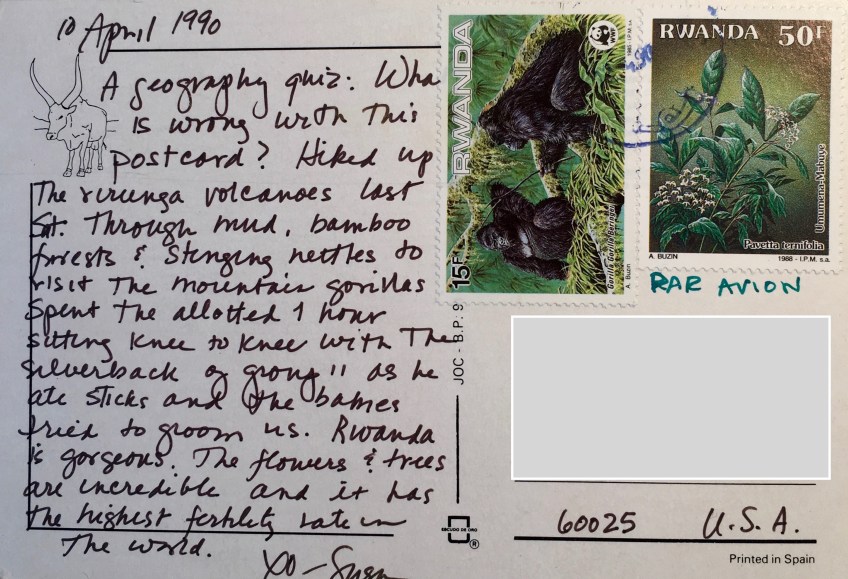 10 April 1990
A geography quiz: Wha
is wrong with this
postcard? Hiked up
The virunga volcanoes last
Sat. Through mud, bamboo
forests & stinging nettles to
visit The mountain gorillas
Spent The allotted 1 hour
sitting knee to knee with The
silverback of group 11 as he
ate sticks and the babies
tried to groom us. Rwanda
is gorgeous. The flowers & trees
are incredible and it has
the highest fertility rate in
The world.
XO - Susan
RWANDA
15F
WWF
Gorilla Gorilla Beringei
A. Buzin
1985 - I.P.M. s.a.
RWANDA 50F
Umumena-Mabuye
Pavetta ternifolia
A. BUZIN
1988 - I.P.M. s.a.
PAR AVION
JOC - B.P. 9
60025 U.S.A.
ESCUDO DE ORO
®
Printed in Spain